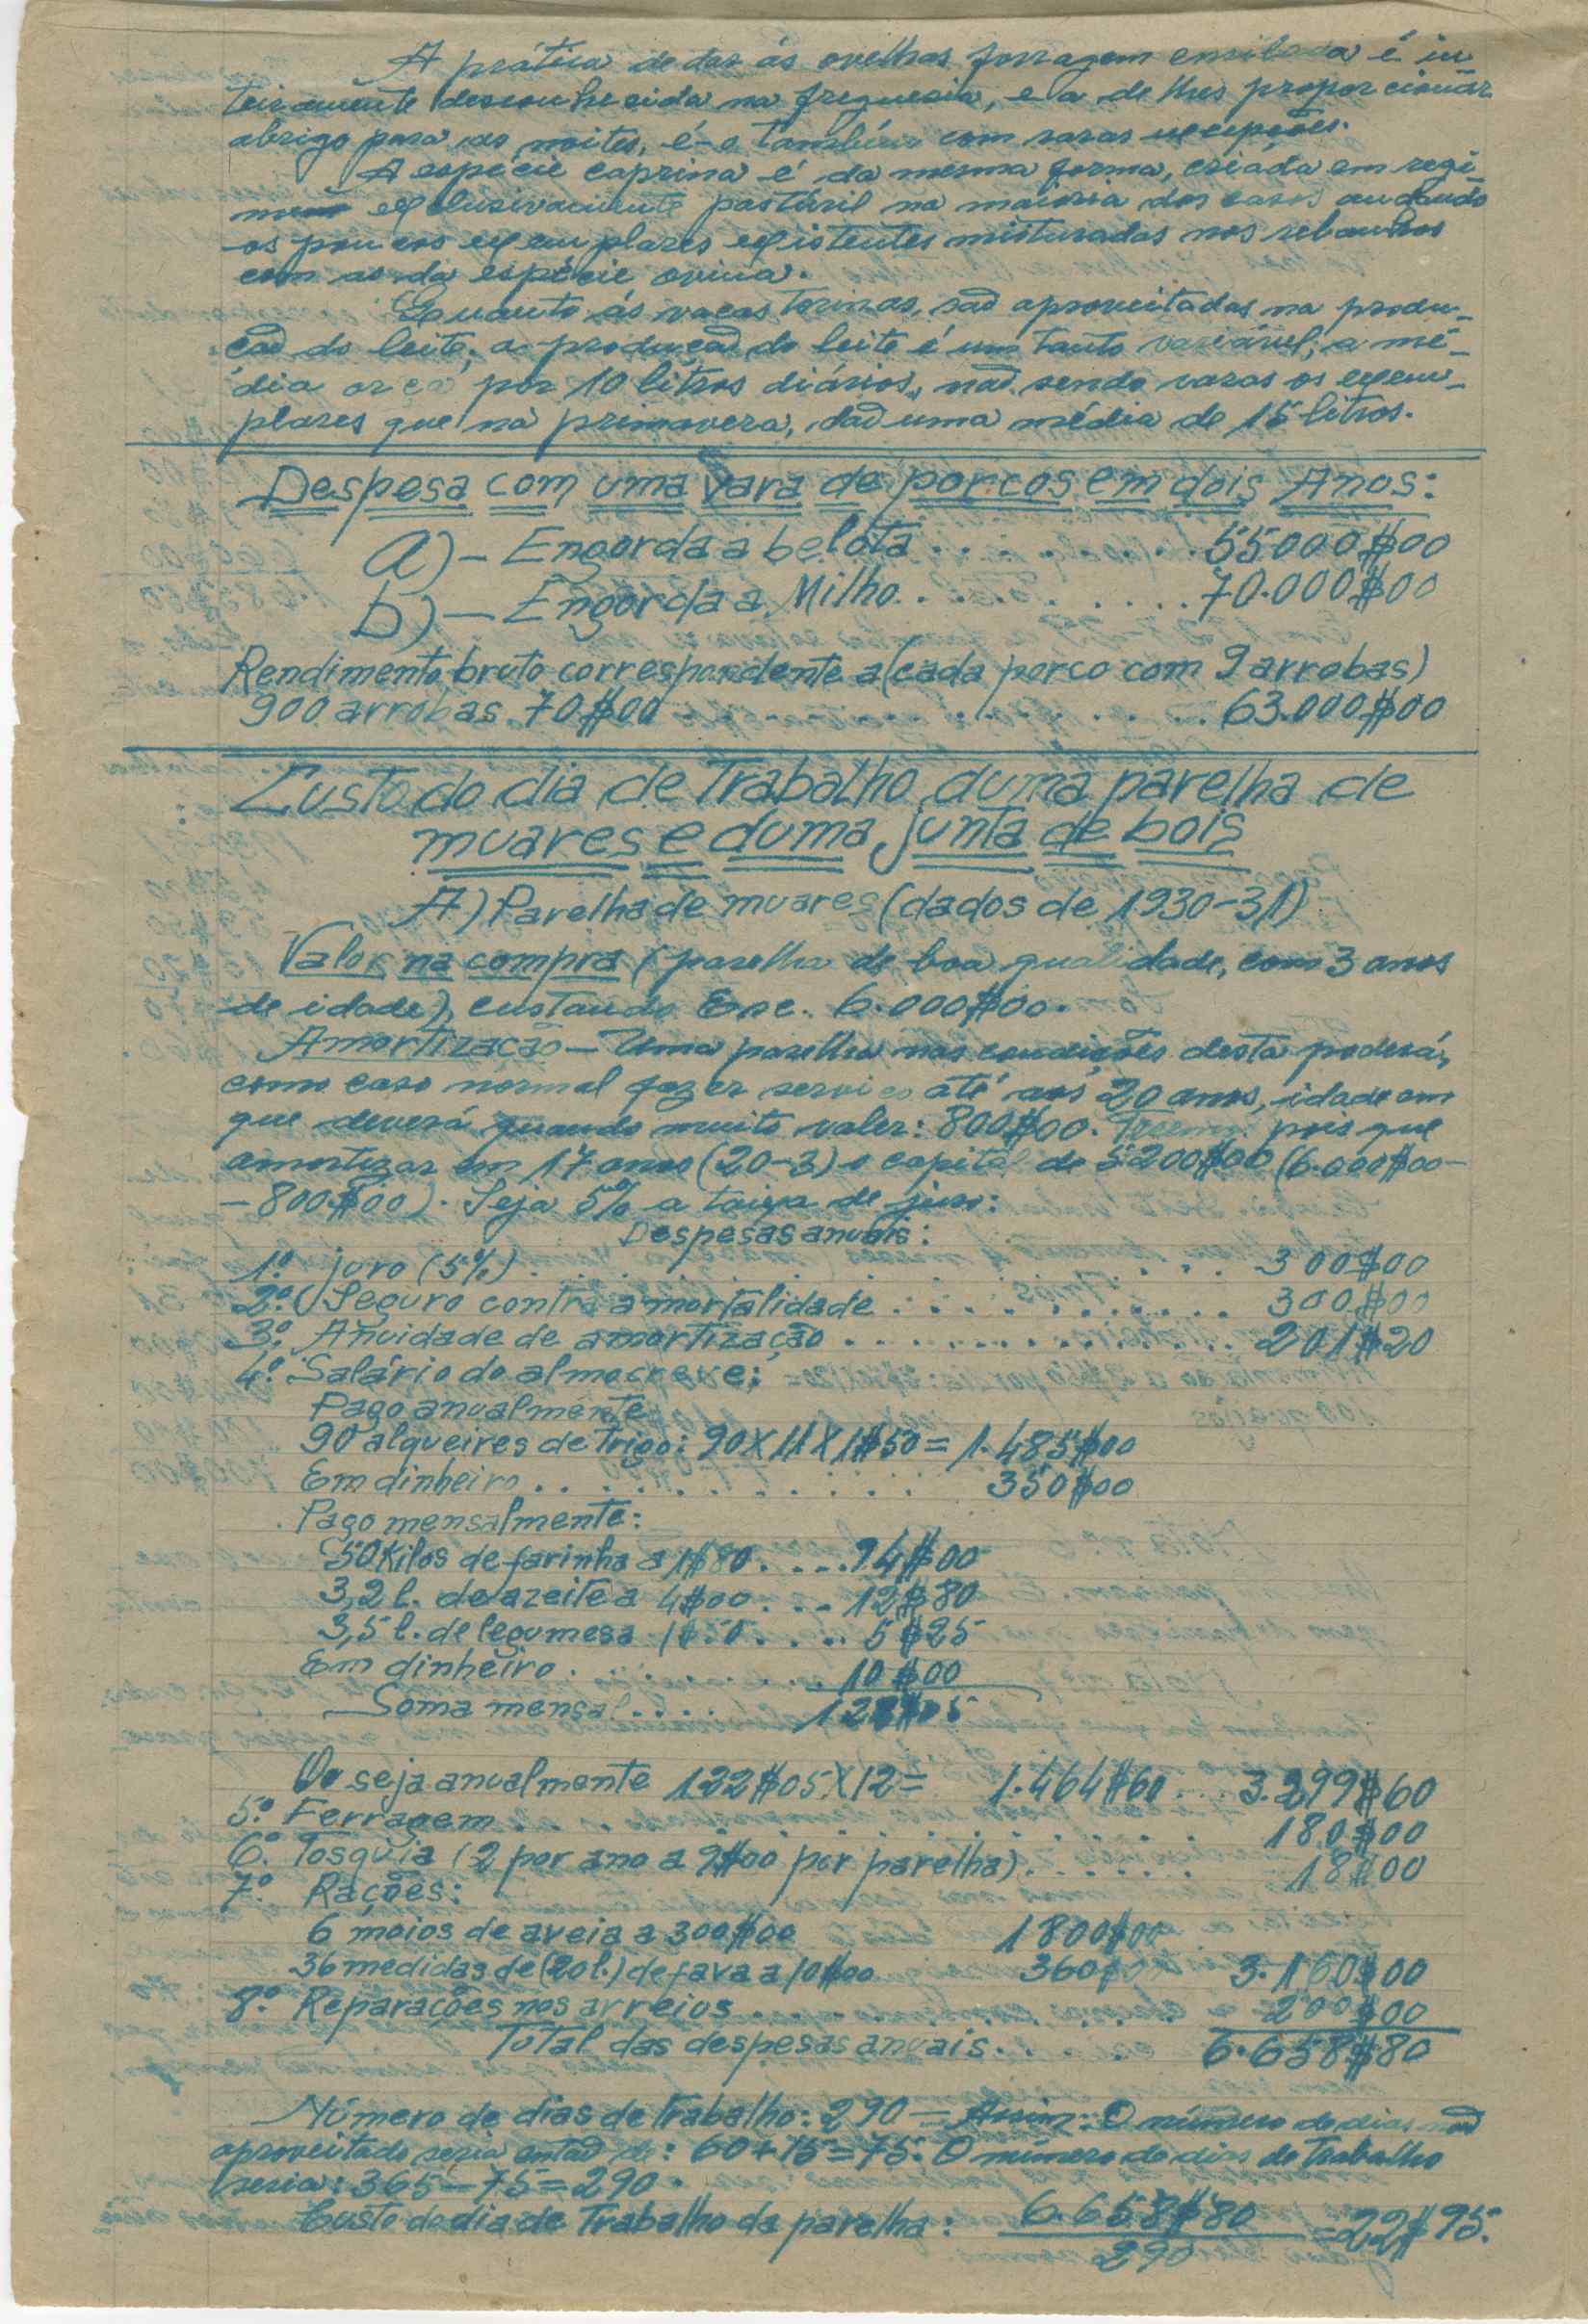 A prática de dar ás ovelhas forragem ensilada é in-
teiramente desconhecida na freguesia, e a de lhes proporcionar
abrigo para as noites, é-o também com raras excepções.
A espécie caprina é da mesma forma, criáda em regi-
mem exclusivamente pastúril na maioria dos casos andando
os poucos exemplares existentes misturadas nos rebanhos
com as da espécie ovina.
Quanto ás vacas torinas, saõ aproveitadas na produ-
çaõ do leite; a produçaõ do leite é um tanto variável; a mé-
dia orça por 10 litros diários, naõ sendo raros os exem-
plares que na primavera, daõ uma média de 15 litros.
Despesa com uma vara de porcos em dois Anos:
a) - Engorda a belota . . . . . . 55000$00
b) - Engorda a Milho . . . . . . 70.000$00
Rendimento bruto correspondente a (cada porco com 9 arrobas)
900 arrobas 70$00 . . . . . . 63.000$00
Custo do dia de Trabalho duma parelha de
muares e duma junta de bois
A) Parelha de muares (dados de 1930-31)
Valor na compra (parelha de boa qualidade, com 3 anos
de idade), custando Esc. 6.000$00.
Amortização - Uma parelha nas condições desta poderá,
como caso normal fazer serviço até aos 20 anos, idade em
que deverá quando muito valer: 800$00. Temos pois que
amortizar em 17 anos (20-3) o capital de 5200$00 (6.000$00-
-800$00). Seja 5% a taixa de juro:
Despesas anuais:
1º juro (5%) . . . . . . 300$00
2º Seguro contra a mortalidade . . . . . . 300$00
3º Anuidade de amortização . . . . . . 201$20
4º Salário do almocreve:
Pago anualmente
90 alqueires de trigo: 90X11X1$50= 1.485$00
Em dinheiro . . . . . . 350$00
Pago mensalmente:
50 Kilos de farinha a 1$80 . . . . 94$00
3,2 l. de azeite a 4$00 . . . 12$80
3,5 l. de legumes a 1$50 . . . . 5$25
Em dinheiro . . . . . . 10$00
Soma mensal . . . . 122$05
Ou seja anualmente 122$05X12= 1.464$60 . . . 3.299$60
5º Ferragem . . . . . . 180$00
6º Tosquia (2 por ano a 9$00 por parelha) . . . . . . 18$00
7º Rações:
6 moios de aveia a 300$00 1800$00
36 medidas de (20 l.) de fava a 10$00 360$00 3.160$00
8º Reparações nos arreios . . . . . . 200$00
Total das despesas anuais . . . . . 6.658$80
Número de dias de Trabalho: 290 - Assim: O número de dias naõ
aproveitado seria entaõ de: 60+15=75. O número de dias de trabalho
seria: 365-75=290.
Custo do dia de Trabalho da parelha: 6.658$80 =22$95.
290